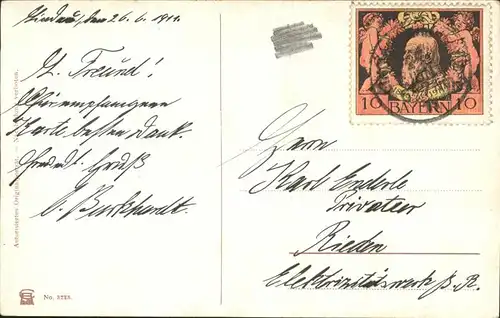 Lindau, den 26.6.1911.
L. Freund!
Für empfangene
Karte besten Dank.
Freundl. Gruß
C. Burkhardt.
Herrn
Karl Enderle
Privatier
Rieden
Elektrizitätswerk B. A.
10 BAYERN 10
No. 3223.